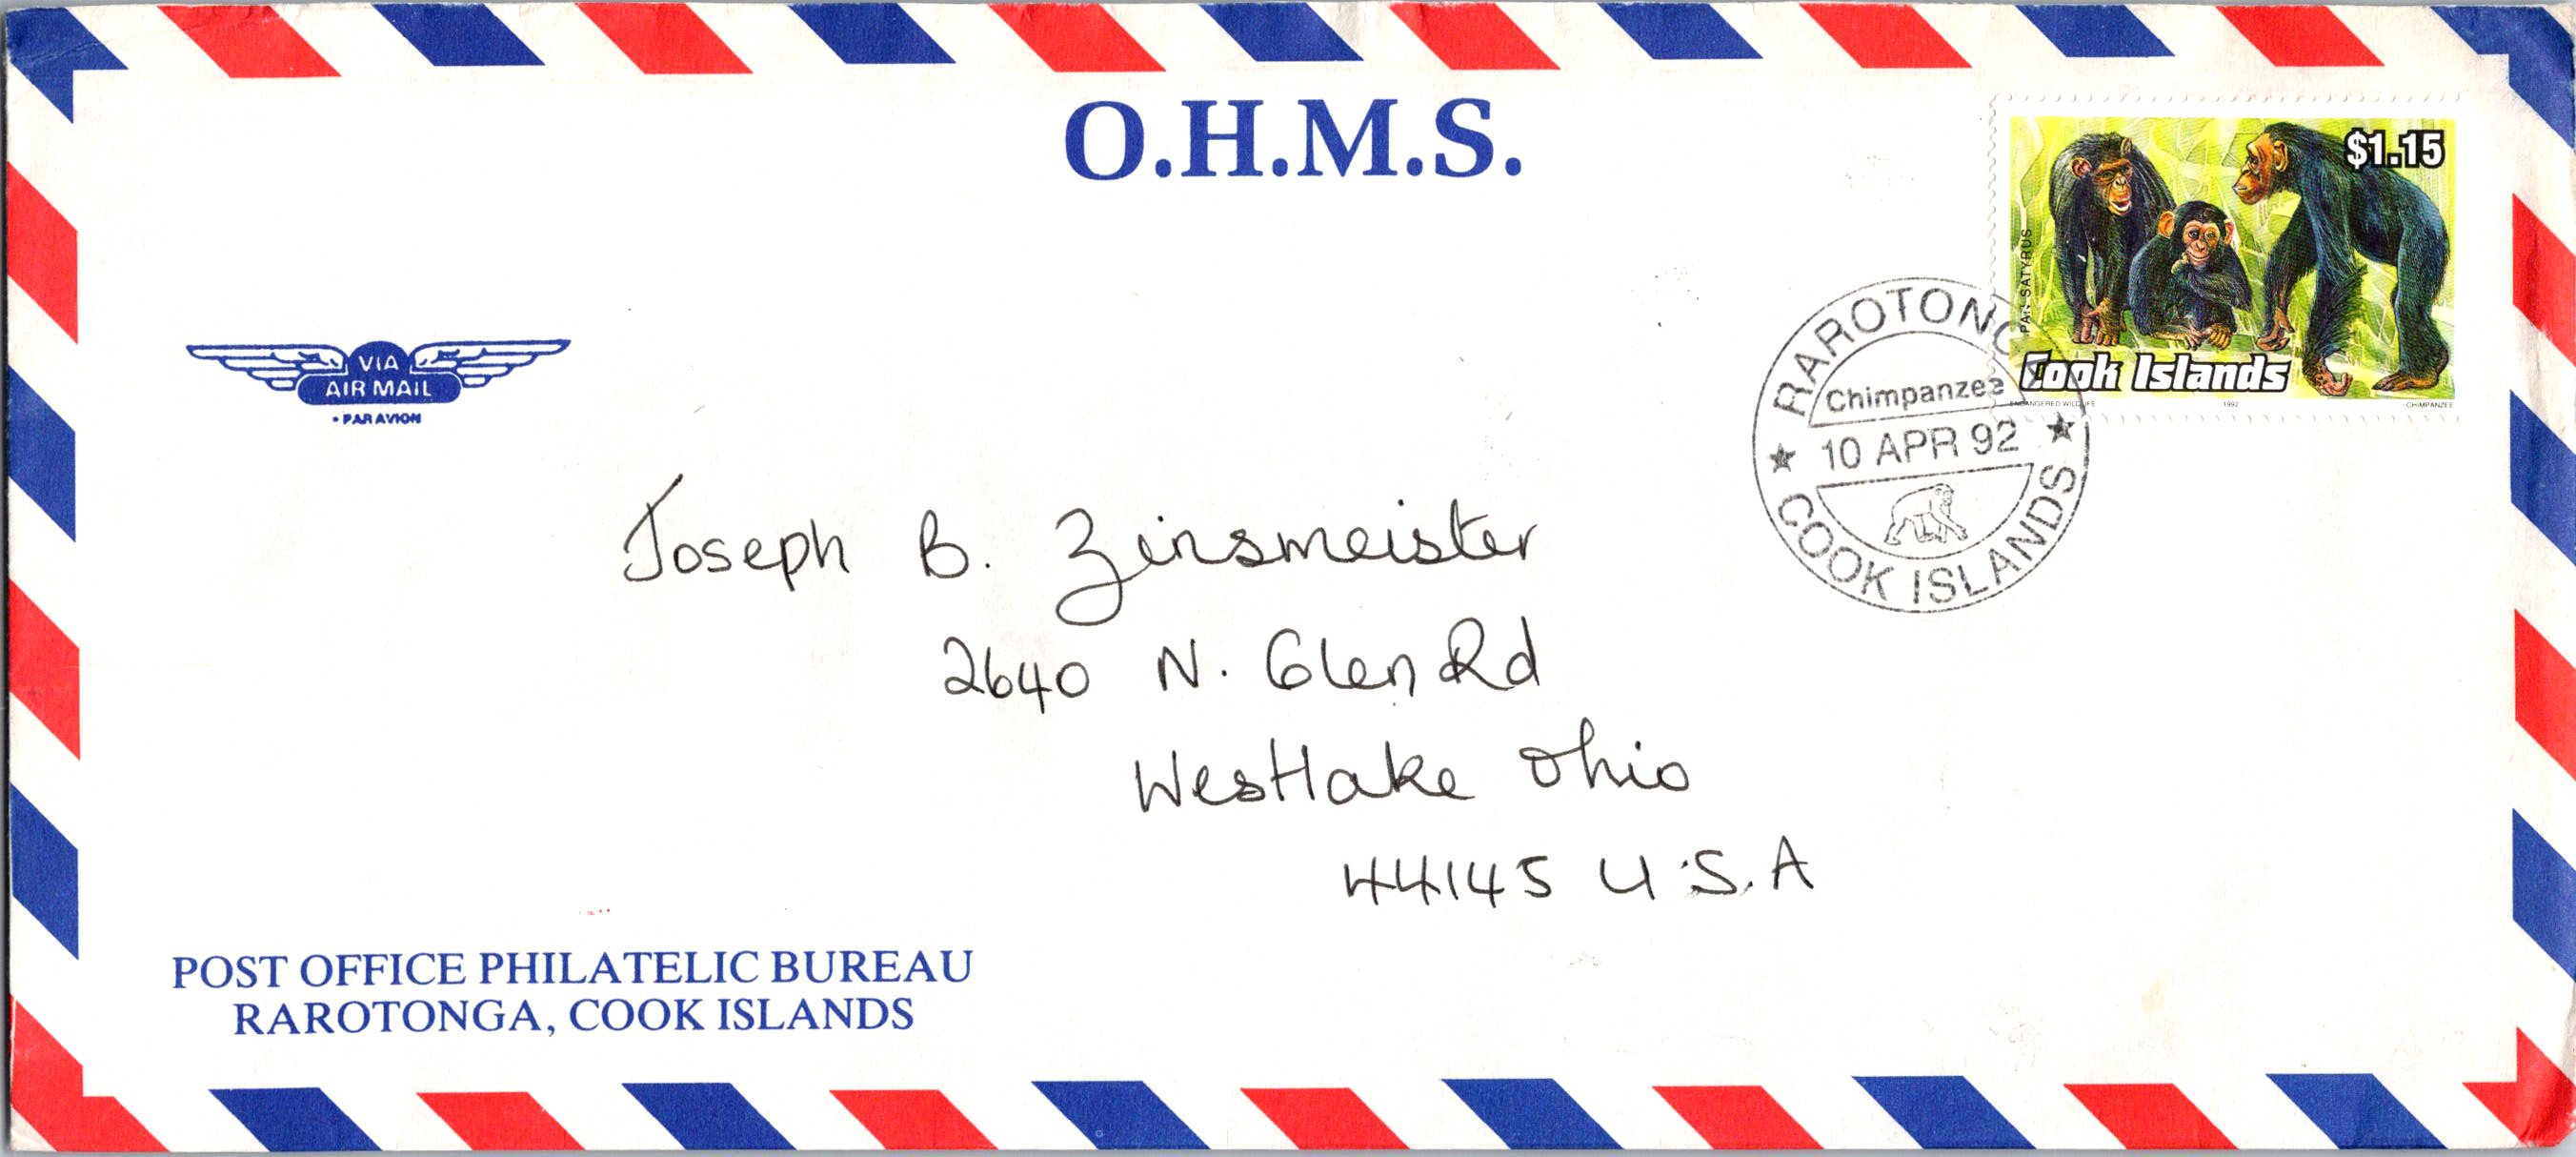 O.H.M.S.
$1.15
PAN SATYRUS
Cook Islands
ENDANGERED WILDLIFE 1992 CHIMPANZEE
VIA
AIR MAIL
• PAR AVION
RAROTONGA
Chimpanzee
10 APR 92
COOK ISLANDS
Joseph B. Zinsmeister
2640 N. Glen Rd
Westlake Ohio
44145 U.S.A
POST OFFICE PHILATELIC BUREAU
RAROTONGA, COOK ISLANDS